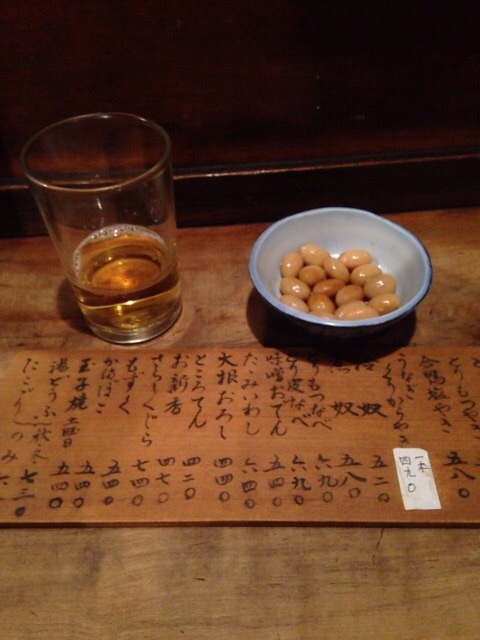 合鴨塩やき 五八〇
うなぎくりからやき 一本 四九〇
奴 五二〇
奴 五八〇
とりもつなべ 六九〇
とり皮なべ 六九〇
味噌おでん 五四〇
たたみいわし 六四〇
大根おろし 四四〇
ところてん 四二〇
お新香 四七〇
さらしくじら 七四〇
もずく 五四〇
かまぼこ 五四〇
玉子焼 土曜日 五四〇
湯どうふ 秋冬のみ 七三〇
にこごり 六